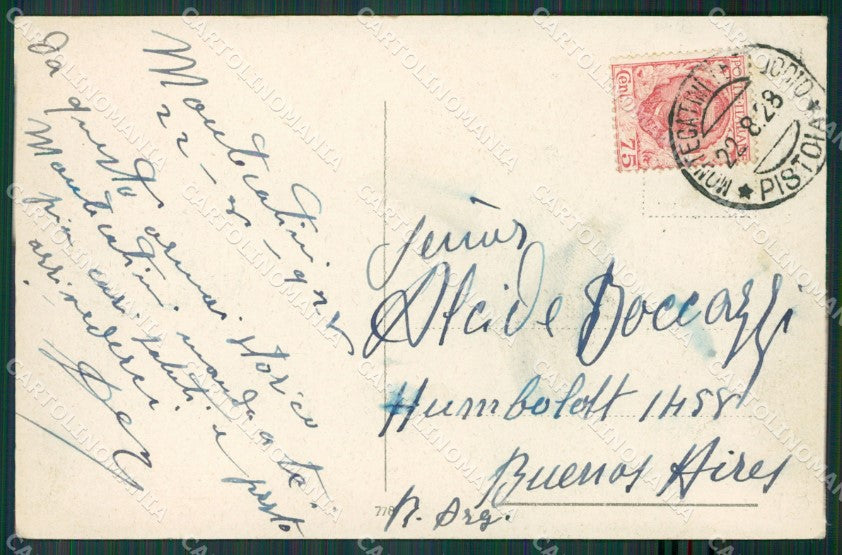 Montecatini
22-8-928
Da questo ormai storico
Montecatini manda a te i
più cari saluti e presto
arrivederci
Señor
Alcide Boccazzi
Humboldt 1458
Buenos Aires
R. Arg.
778
MONTECATINI
22.8.28
PISTOIA
Cen. 75
CARTOLINOMANIA